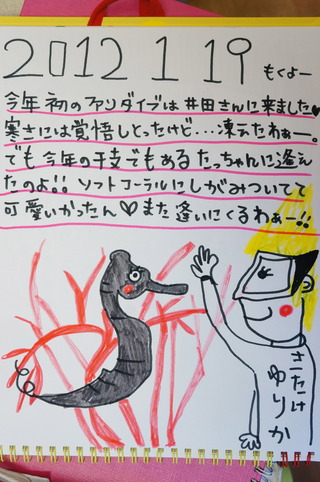 2012 1 19 もくよー
今年初のファンダイブは井田さんに来ました♥
寒さには覚悟しとったけど…凍えたわぁー。
でも今年の干支でもあるたっちゃんに逢え
たのよ!! ソフトコーラルにしがみついてて
可愛いかったん♡また逢いにくるわぁー!!
さたけ
ゆりか